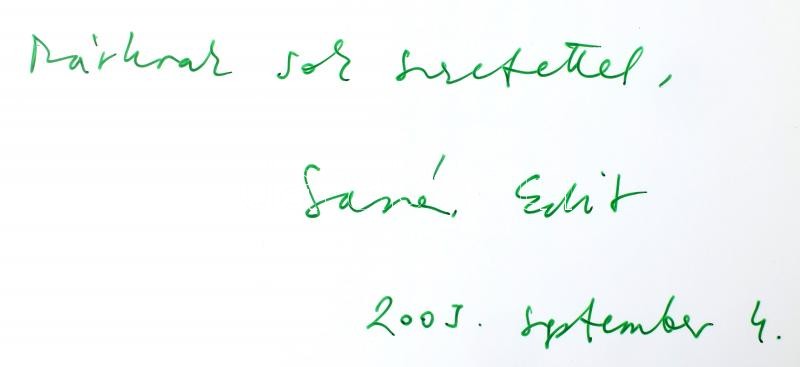 Márknak sok szeretettel,
Edit
2005. szeptember 4.